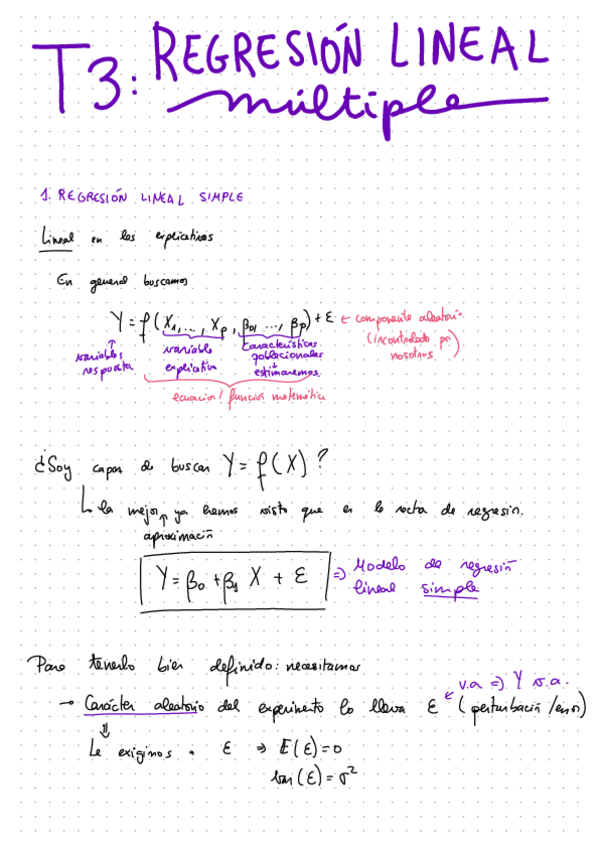 T3: REGRESIÓN LINEAL
múltiple
1. REGRESIÓN LINEAL SIMPLE
Lineal en las explicativas
En general buscamos
Y = f(X₁, ..., Xp, β₀, ..., βp) + ε ← componente aleatoria
(incontrolado por nosotros)
variables respuesta
variable explicativa
Características poblacionales → estimaremos.
ecuación / función matemática
¿Soy capaz de buscar Y = f(X)?
↳ la mejor aproximación ya hemos visto que es la recta de regresión.
Y = β₀ + β₁ X + ε ⇒ Modelo de regresión
lineal simple
Para tenerlo bien definido: necesitamos
v.a ⇒ Y v.a.
→ Carácter aleatorio del experimento lo lleva ε ← (perturbación / error)
⇓
Le exigimos · ε ⇒ E(ε) = 0
Var(ε) = σ²